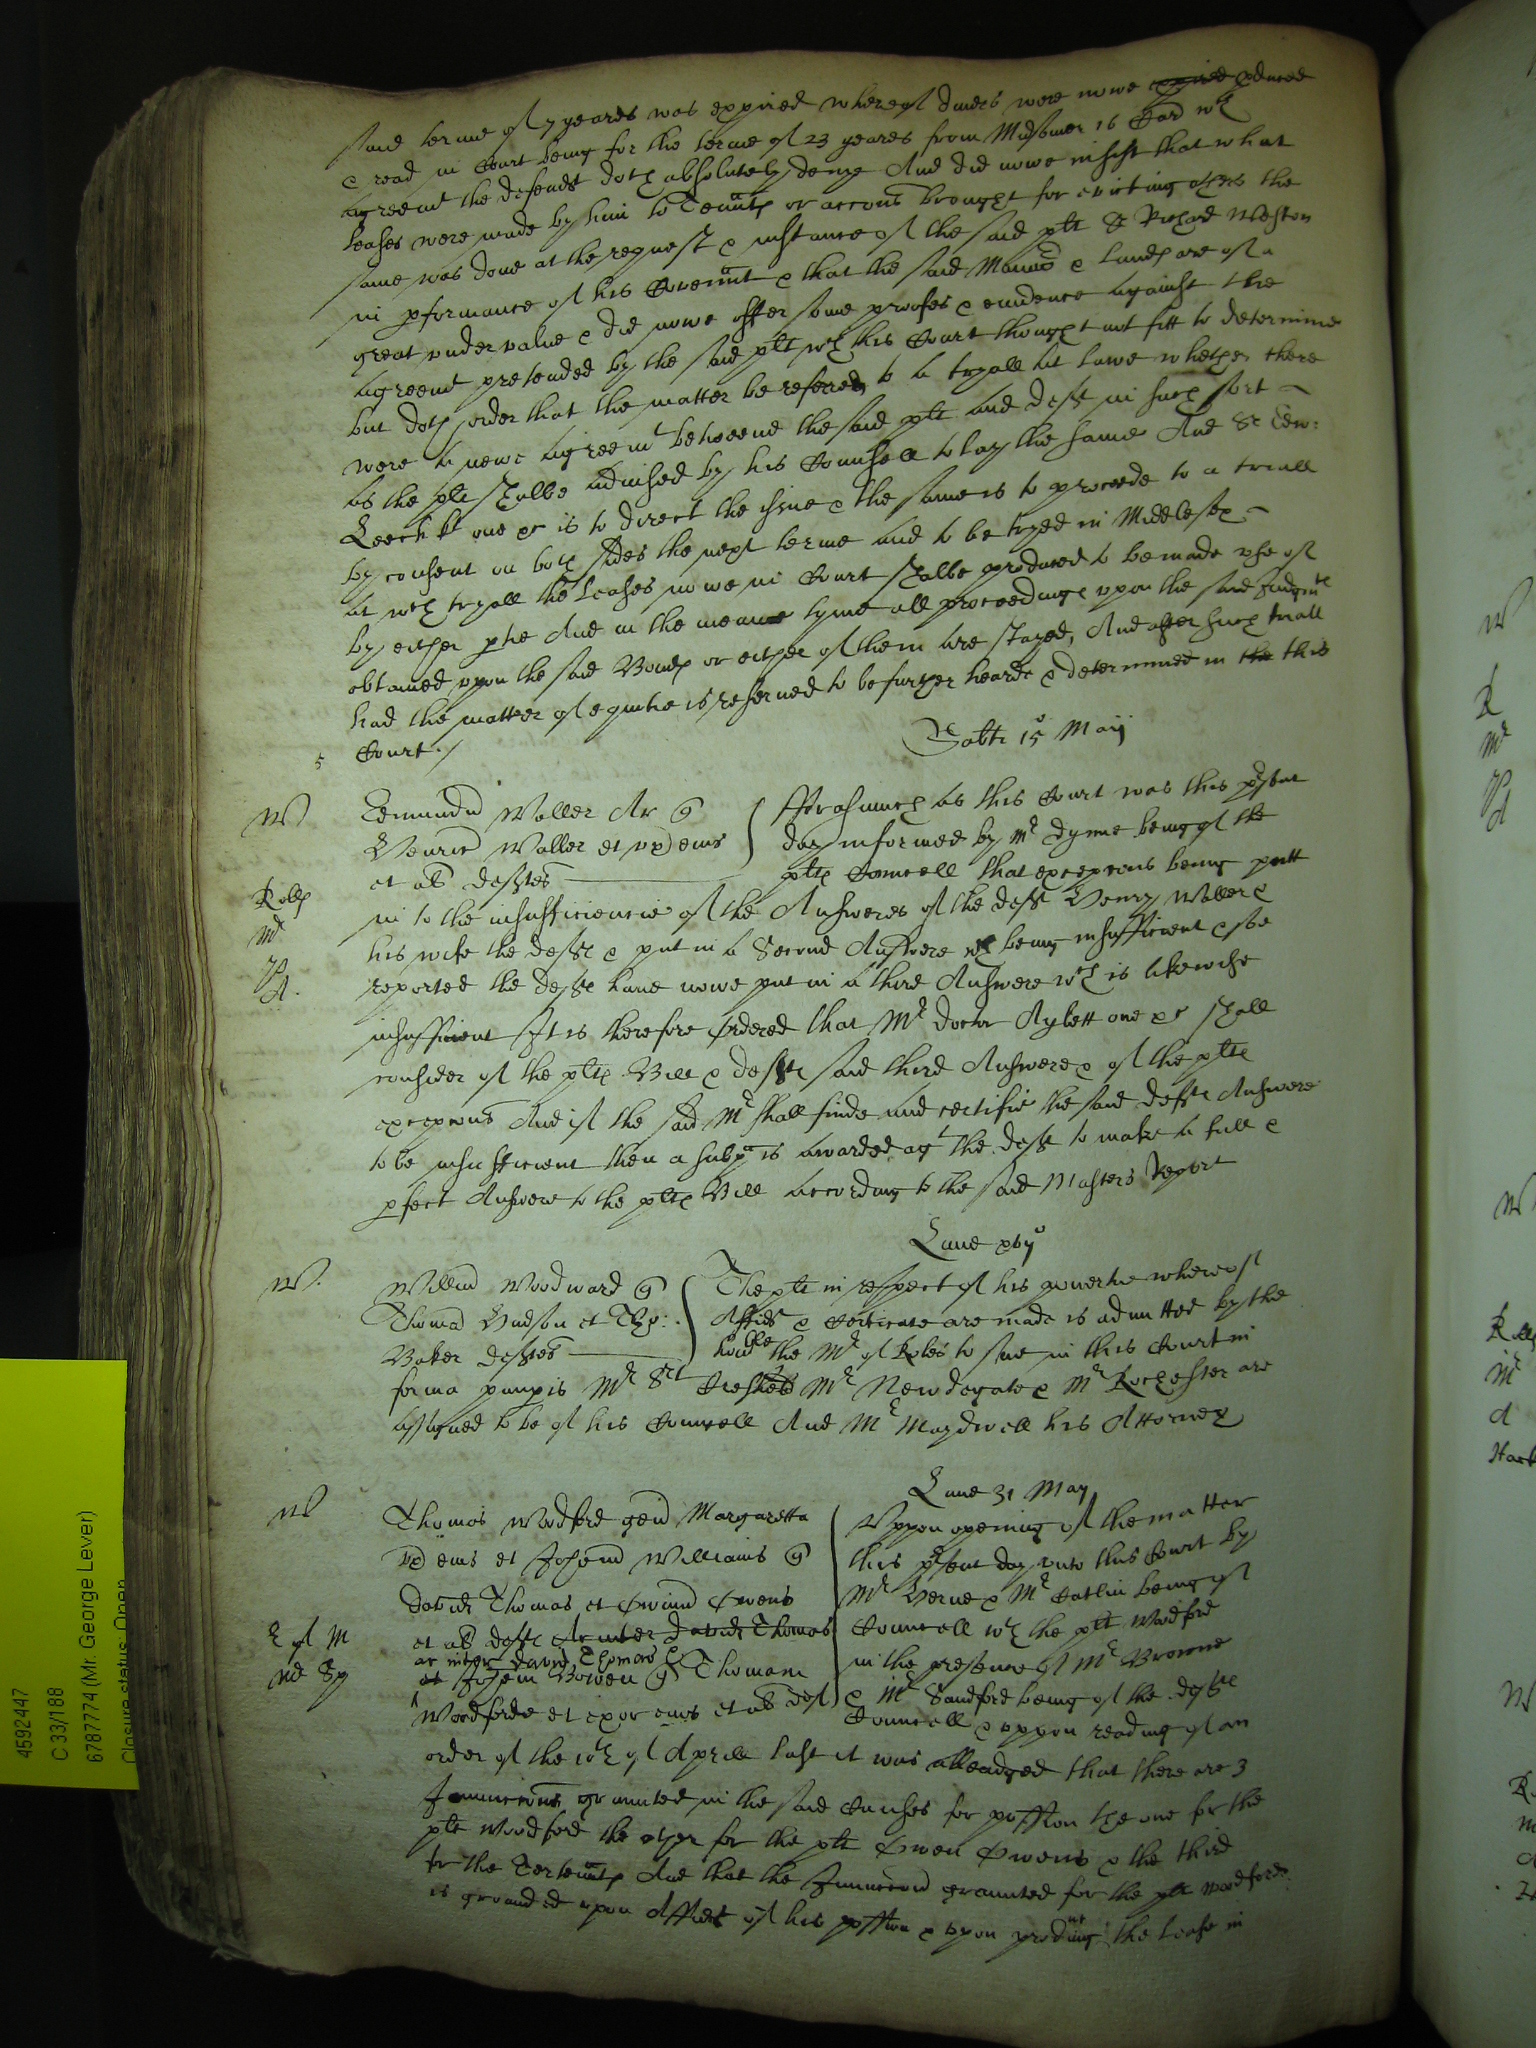 said terme of 7 yeares was expired whereof divers were nowe expired produced
& read in Court being for the terme of 23 yeares from Midsomer 16 Car wch
agreemt the defendt doth absolutely deny And did nowe insist that what
leases were made by him to Tenntes or accons brought for evicting others the
same was done at the request & instance of the said plt Sr Richard Weston
in pformance of his Covennt & that the said Mannor & landes are of a
great undervalue & did nowe offer some proofes & evidence against the
agreemt pretended by the said plt wch this Court thought not fitt to determine
but doth order that the matter be referred to a tryall at lawe whether there
were a newe agreemt betweene the said plt and deft in such sort
as the plt shalbe advised by his Counsell to lay the same And Sr Edw:
Leech kt one &c is to direct the issue & the same is to proceede to a triall
by consent on both sides the next terme and to be tryed in Middlesex
at wch tryall the leases nowe in Court shalbe produced to be made use of
by either ptie And in the meane tyme all proceedinges upon the said Judgmte
obtained upon the said Bondes or either of them are stayed, And after such triall
had the matter of equitie is reserved to be further heard & determined in the this
Court ./
5
Sabti 15o Maij
W
Edmundus Waller Ar q
Henric Waller et ux eius
et al deftes
Forasmuch as this Court was this psent
day informed by Mr Dynne being of the
pltes Councell that excepcons being putt
Rolles
in to the insufficiencie of the Answeres of the deft Henry Waller &
Mr
his wife the defte & put in a Second Answere wch being insufficient & soe
P
A.
reported the defte have nowe put in a third Answere wch is likewise
insufficient It is therefore Ordered that Mr Doctor Aylett one &c shall
consider of the pltes Bill & defte said third Answere & of the pltes
excepcons And if the said Mr shall finde and certifie the said defte Answere
to be insufficient then a subp is awarded agt the deft to make a full &
pfect Answere to the pltes Bill according to the said Masters Report
Lune xvijo
W.
Willm Woodward q
Thomas Hudson et Chr:
Baker deftes
The plt in respect of his povertie whereof
Affidt & Certificate are made is admitted by the
honble the Mr of Roles to sue in this Court in
forma paupis Mr Srt Cresheld Mr Newdegate & Mr Rochester are
assigned to be of his Councell And Mr Maydwell his Attorney
Lune 31 May
W
Thomas Woodford gen Margaretta
ux eius et Johem Williams q
David Thomas et Owinn Owens
et al defte Ac inter David Thomas
ac inter David Thomas &
et Johem Bowen q Thomam
Woodforde et uxor eius et al def
E of M
Mr Sp
Uppon opening of the matter
this psent day unto this Court by
Mr Herne & Mr Catlin being of
Councell wth the plt Woodford
in the presence of Mr Browne
& Mr Sandford being of the defte
Councell & uppon reading of an
order of the 10th of Aprill last it was alleadged that there are 3
Iniunccons graunted in the said Causes for possion the one for the
plt Woodford the other for the plt Owen Owens & the third
for the Tertennts And that the Iniunccon graunted for the plt Woodforde
is grounded upon Affidt of his possion & upon producing the lease in
4592447
C 33/188
6787774 (Mr. George Lever)
Closure status: Open